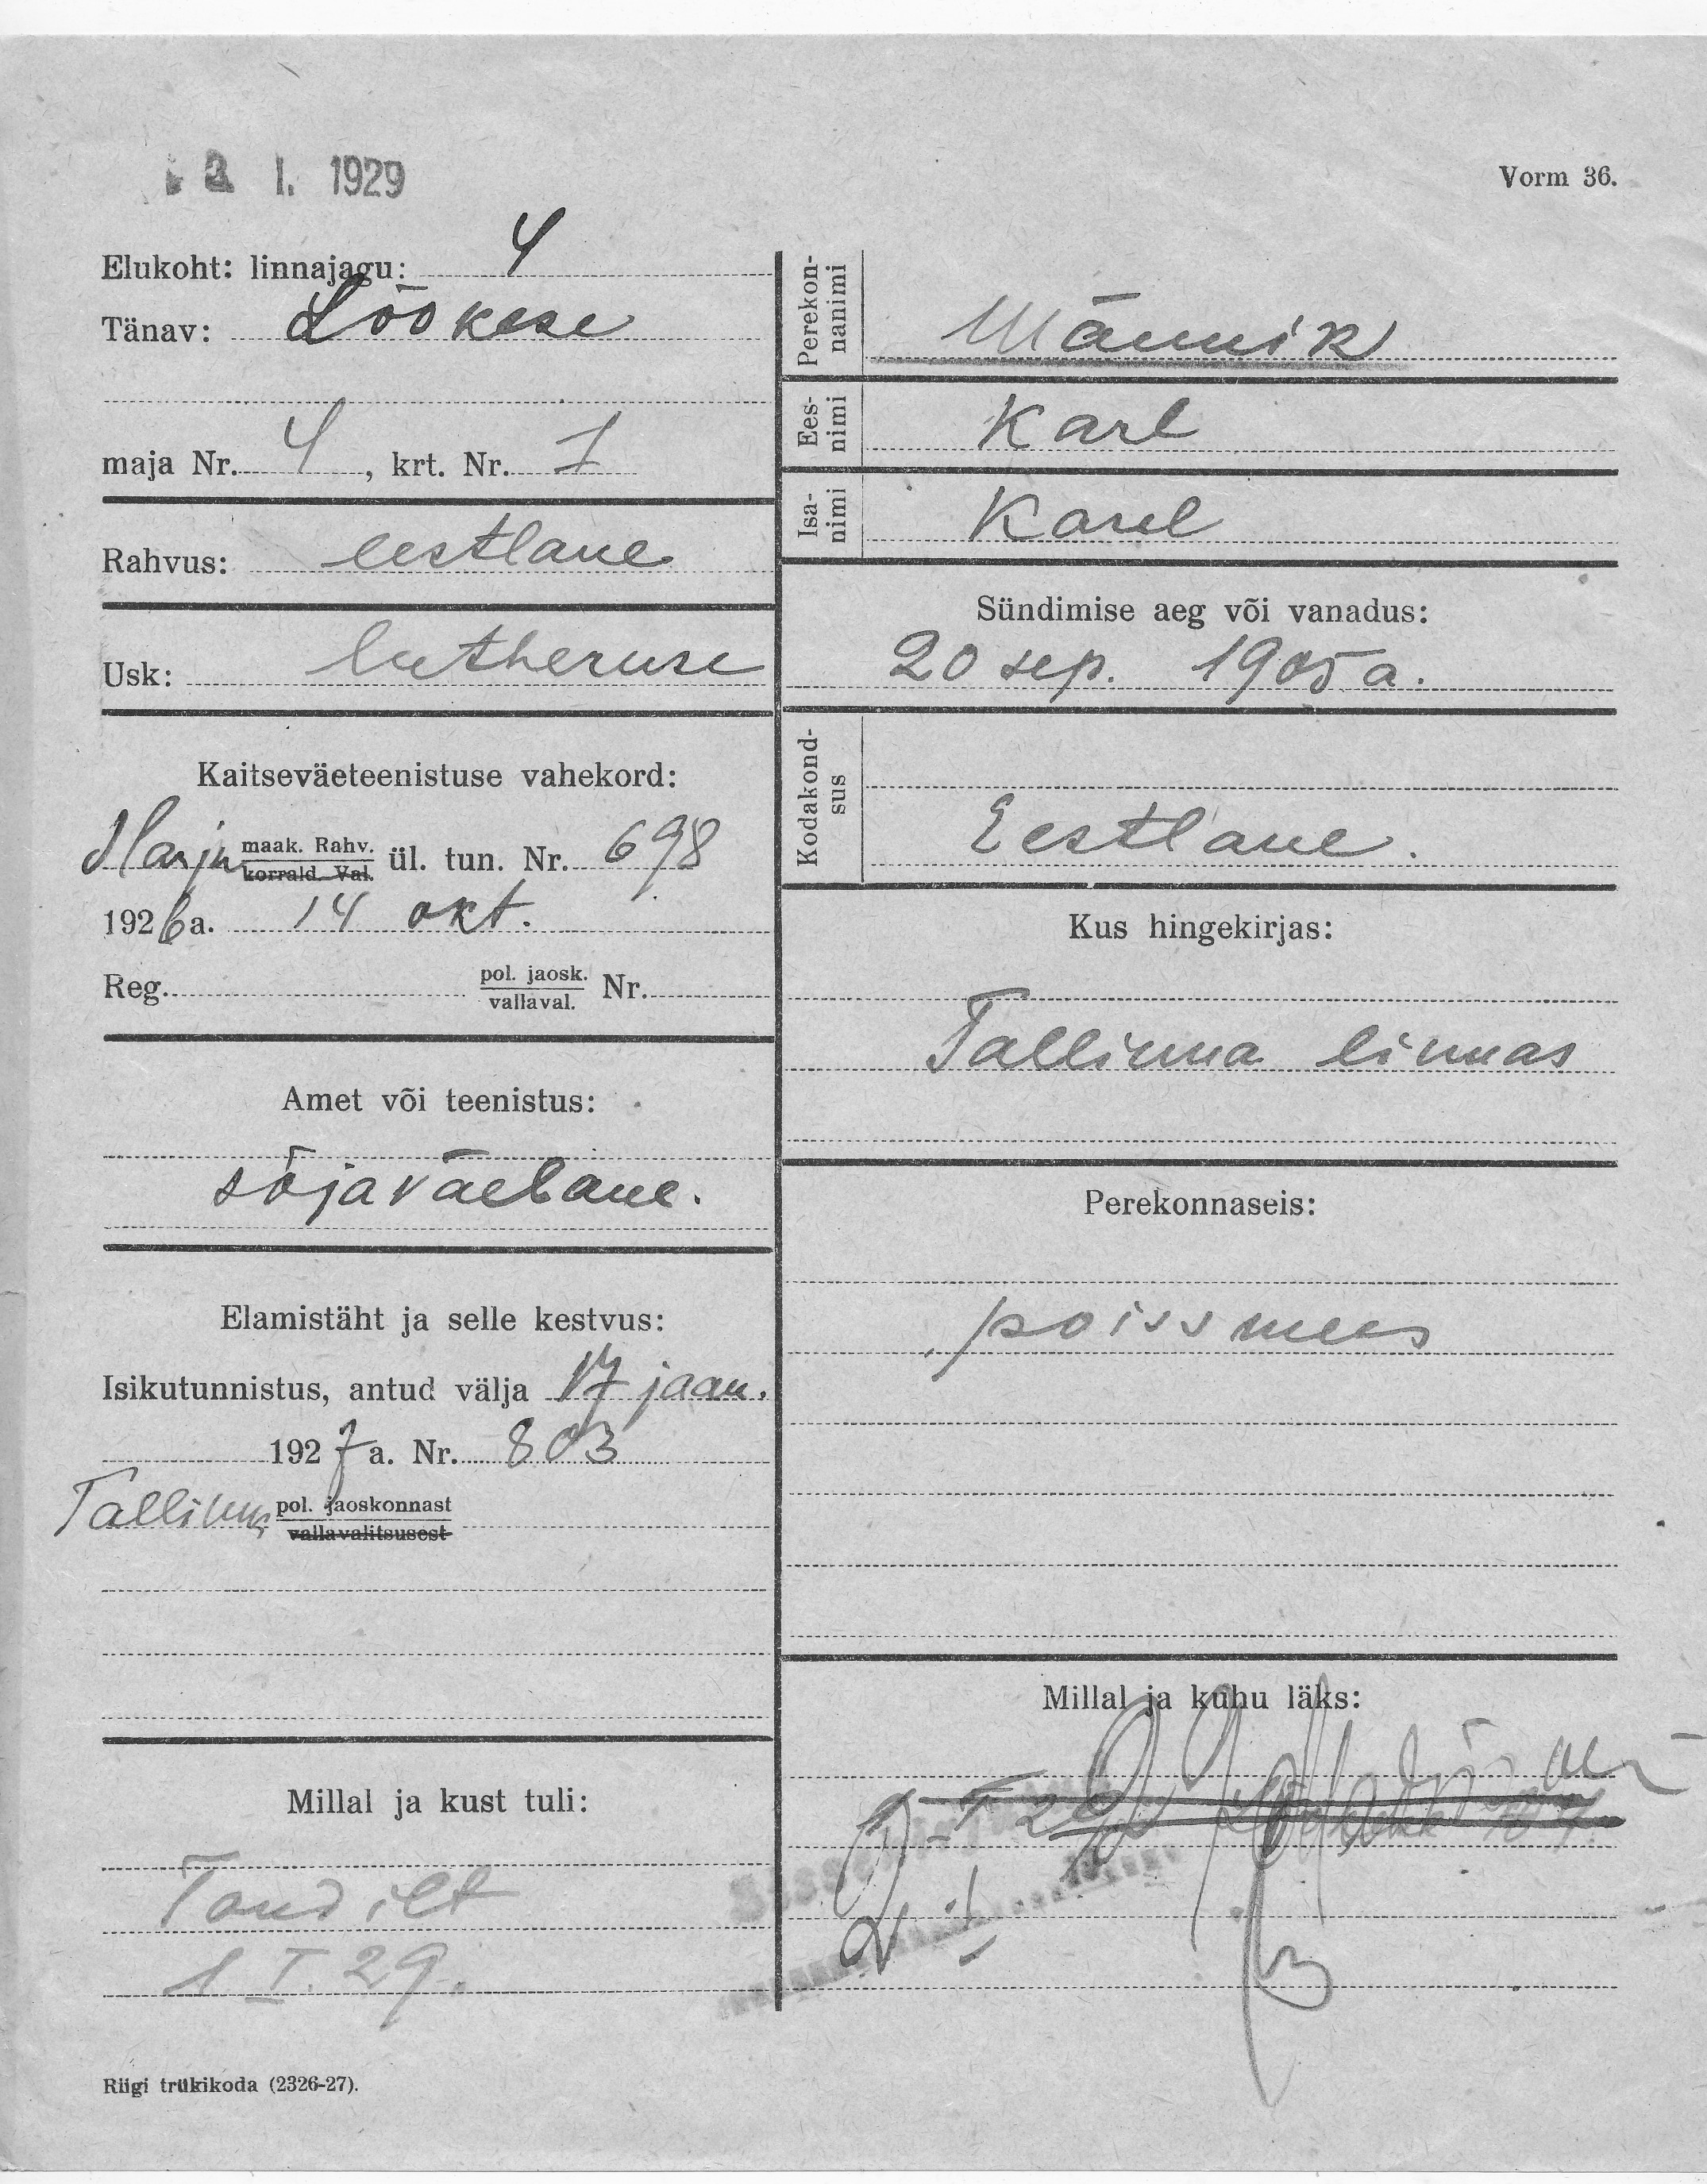 2 I. 1929
Vorm 36.
Elukoht: linnajagu: 4
Tänav: Lõokese
maja Nr. 4, krt. Nr. 1
Rahvus: eestlane
Usk: lutheruse
Kaitseväeteenistuse vahekord:
Harju maak. Rahv. ül. tun. Nr. 698
korrald. Val.
1926 a. 14 okt.
Reg. pol. jaosk. Nr.
vallaval.
Amet või teenistus:
sõjaväelane.
Elamistäht ja selle kestvus:
Isikutunnistus, antud välja 17 jaan.
1927 a. Nr. 803
Tallinna pol. jaoskonnast
vallavalitsusest
Millal ja kust tuli:
1 I. 29.
Riigi trükikoda (2326-27).
Perekon-
nanimi Männik
Ees-
nimi Karl
Isa-
nimi Karel
Sündimise aeg või vanadus:
20 sep. 1905 a.
Kodakond-
sus Eestlane.
Kus hingekirjas:
Tallinna linnas
Perekonnaseis:
poissmees
Millal ja kuhu läks: